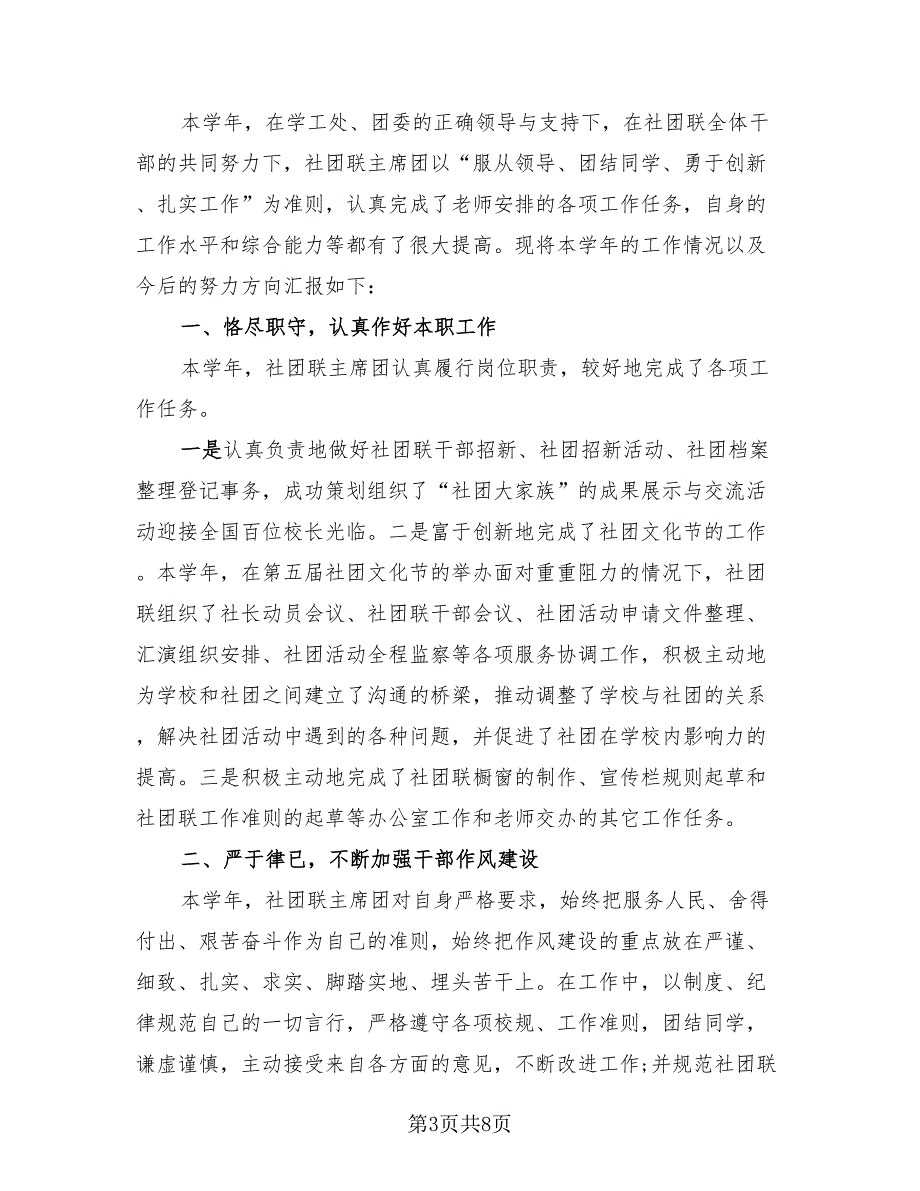 本学年，在学工处、团委的正确领导与支持下，在社团联全体干
部的共同努力下，社团联主席团以“服从领导、团结同学、勇于创新
、扎实工作”为准则，认真完成了老师安排的各项工作任务，自身的
工作水平和综合能力等都有了很大提高。现将本学年的工作情况以及
今后的努力方向汇报如下：
一、恪尽职守，认真作好本职工作
本学年，社团联主席团认真履行岗位职责，较好地完成了各项工
作任务。
一是认真负责地做好社团联干部招新、社团招新活动、社团档案
整理登记事务，成功策划组织了“社团大家族”的成果展示与交流活
动迎接全国百位校长光临。二是富于创新地完成了社团文化节的工作
。本学年，在第五届社团文化节的举办面对重重阻力的情况下，社团
联组织了社长动员会议、社团联干部会议、社团活动申请文件整理、
汇演组织安排、社团活动全程监察等各项服务协调工作，积极主动地
为学校和社团之间建立了沟通的桥梁，推动调整了学校与社团的关系
，解决社团活动中遇到的各种问题，并促进了社团在学校内影响力的
提高。三是积极主动地完成了社团联橱窗的制作、宣传栏规则起草和
社团联工作准则的起草等办公室工作和老师交办的其它工作任务。
二、严于律已，不断加强干部作风建设
本学年，社团联主席团对自身严格要求，始终把服务人民、舍得
付出、艰苦奋斗作为自己的准则，始终把作风建设的重点放在严谨、
细致、扎实、求实、脚踏实地、埋头苦干上。在工作中，以制度、纪
律规范自己的一切言行，严格遵守各项校规、工作准则，团结同学，
谦虚谨慎，主动接受来自各方面的意见，不断改进工作;并规范社团联
第3页共8页